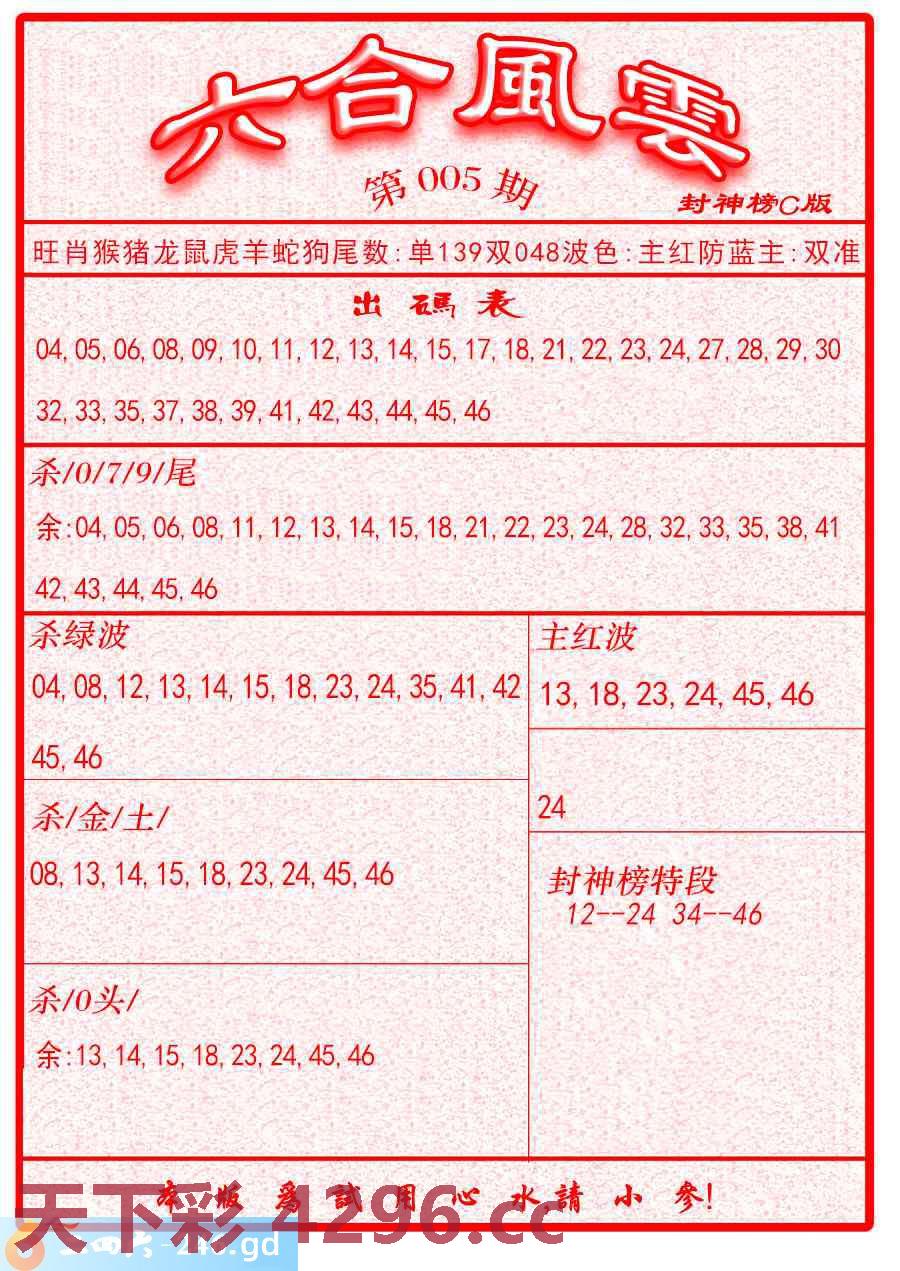 六合風雲
第005期
封神榜C版
旺肖猴猪龙鼠虎羊蛇狗尾数:单139双048波色:主红防蓝主:双准
出碼表
04,05,06,08,09,10,11,12,13,14,15,17,18,21,22,23,24,27,28,29,30
32,33,35,37,38,39,41,42,43,44,45,46
杀/0/7/9/尾
余:04,05,06,08,11,12,13,14,15,18,21,22,23,24,28,32,33,35,38,41
42,43,44,45,46
杀绿波
04,08,12,13,14,15,18,23,24,35,41,42
45,46
主红波
13,18,23,24,45,46
24
杀/金/土/
08,13,14,15,18,23,24,45,46
封神榜特段
12--24 34--46
杀/0头/
余:13,14,15,18,23,24,45,46
本版爲試用心水,請小參!
天下彩 4296.cc
二四六-246.gd